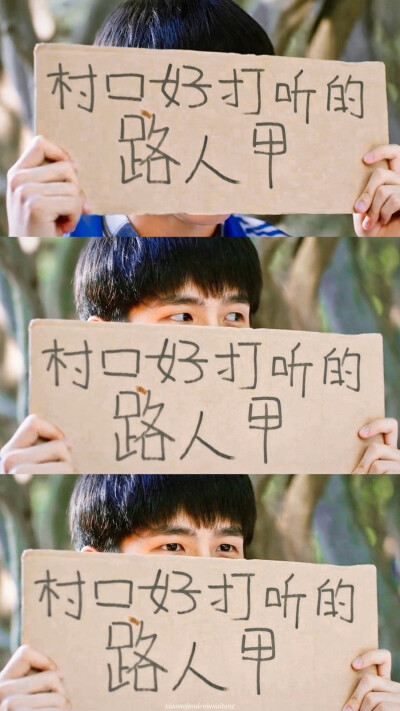 村口好打听的
路人甲
村口好打听的
路人甲
村口好打听的
路人甲